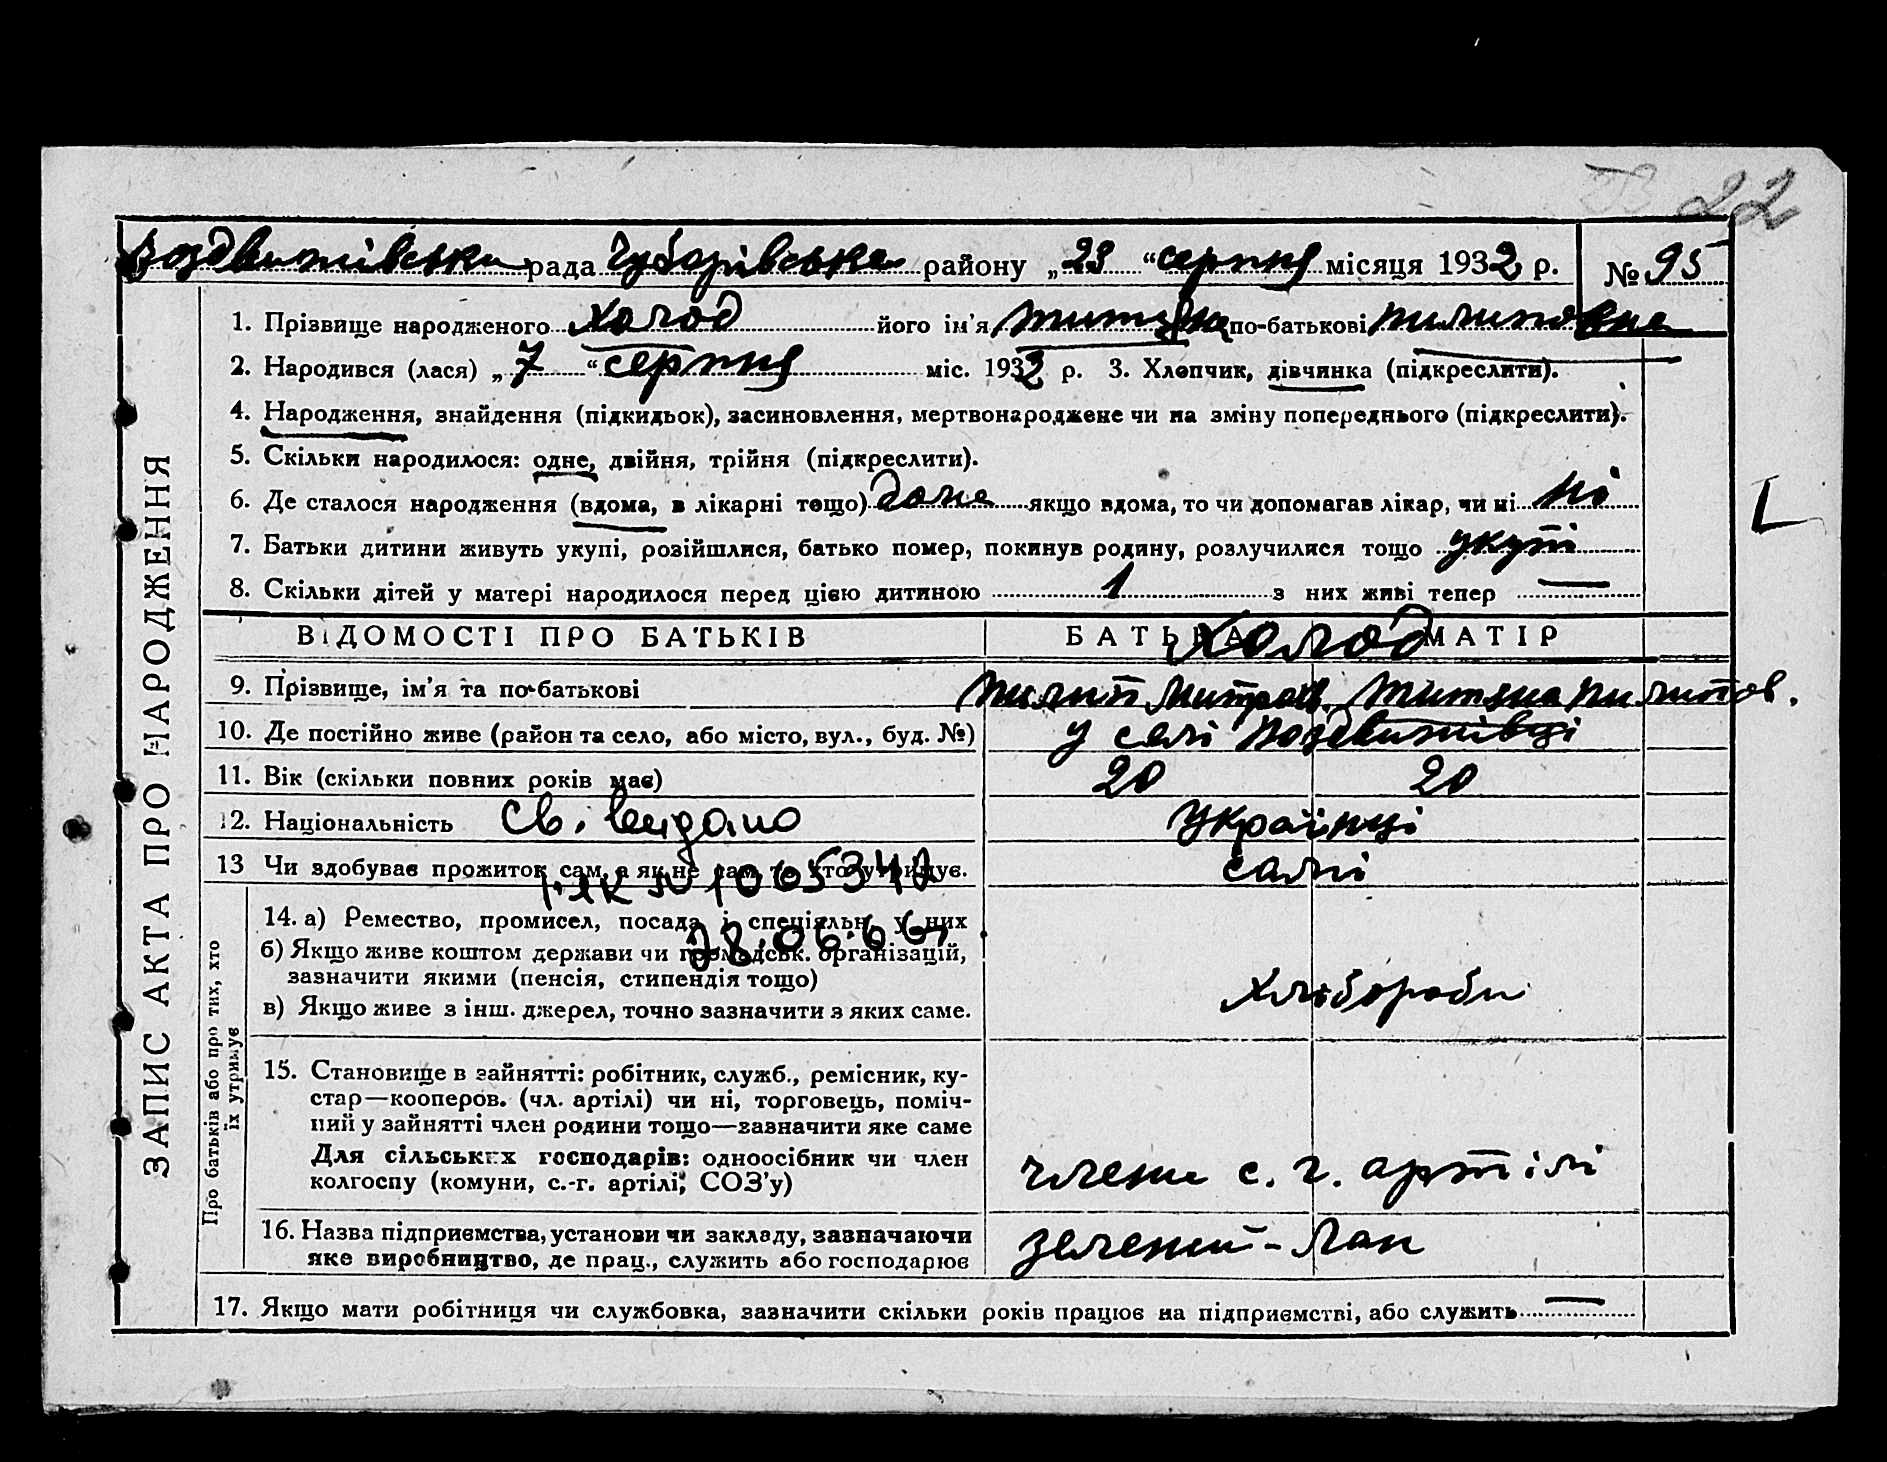 22
Воздвижівська рада Чубарівське району „23“ серпня місяця 1932 р. № 95
1. Прізвище народженого Холод його ім'я Титяна по-батькові Пилиповна
2. Народився (лася) „7“ серпня міс. 1932 р. 3. Хлопчик, дівчинка (підкреслити).
4. Народження, знайдення (підкидьок), засиновлення, мертвонароджене чи на зміну попереднього (підкреслити).
5. Скільки народилося: одне, двійня, трійня (підкреслити).
6. Де сталося народження (вдома, в лікарні тощо) дома якщо вдома, то чи допомагав лікар, чи ні ні
7. Батьки дитини живуть укупі, розійшлися, батько помер, покинув родину, розлучилися тощо укупі
8. Скільки дітей у матері народилося перед цією дитиною 1 з них живі тепер —
ЗАПИС АКТА ПРО НАРОДЖЕННЯ
ВІДОМОСТІ ПРО БАТЬКІВ БАТЬКА Холод МАТІР
9. Прізвище, ім'я та по-батькові Пилип Митроф. Титяна Пилипов.
10. Де постійно живе (район та село, або місто, вул., буд. №) у селі Воздвижівці
11. Вік (скільки повних років має) 20 20
12. Національність Українці
Св. видано
13 Чи здобуває прожиток сам, а як не сам, то хто утримує. самі
І-ЯК № 1065347
28.06.66
Про батьків або про тих, хто їх утримує
14. а) Ремество, промисел, посада і спеціяльн. у них
б) Якщо живе коштом держави чи громадськ. організацій,
зазначити якими (пенсія, стипендія тощо)
Хлібороби
в) Якщо живе з інш. джерел, точно зазначити з яких саме.
15. Становище в зайнятті: робітник, служб., ремісник, ку-
стар—кооперов. (чл. артілі) чи ні, торговець, поміч-
ний у зайнятті член родини тощо—зазначити яке саме
Для сільських господарів: одноосібник чи член
колгоспу (комуни, с.-г. артілі, СОЗ'у) члени с. г. артілі
16. Назва підприємства, установи чи закладу, зазначаючи
яке виробництво, де прац., служить або господарює зелений-Лан
17. Якщо мати робітниця чи службовка, зазначити скільки років працює на підприємстві, або служить —